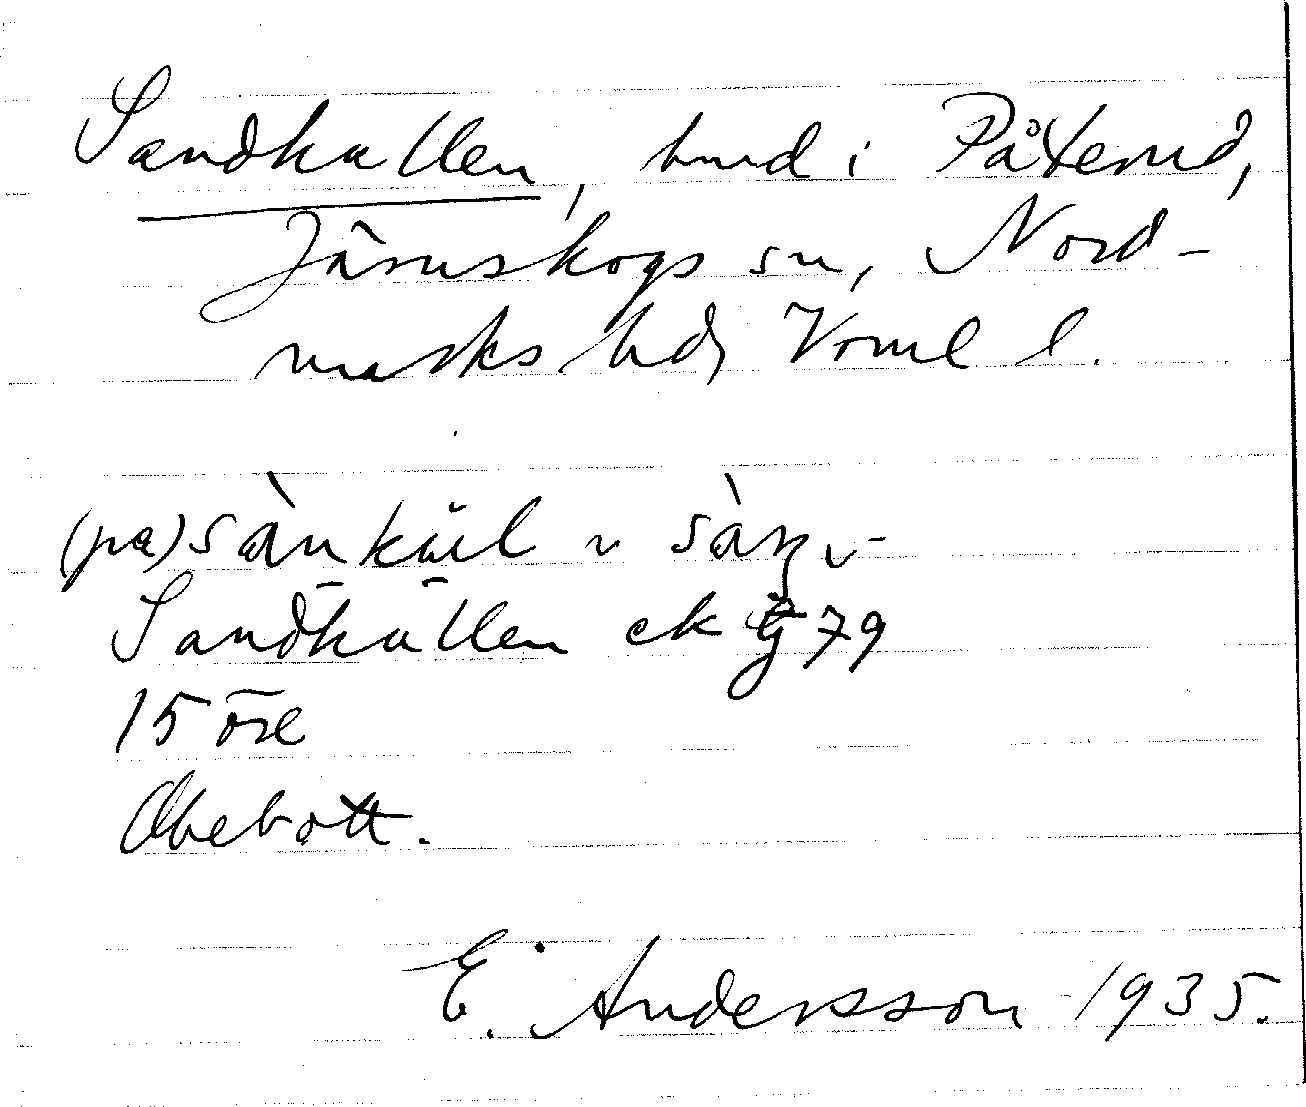 Sandkällen, hmd i Påterud,
Järnskogs sn, Nord-
marks hd, Värml l.
(pa) sànkäl v sàŋ v-
Sandkällen ek 79
15 öre
Obebott.
E. Andersson 1935.